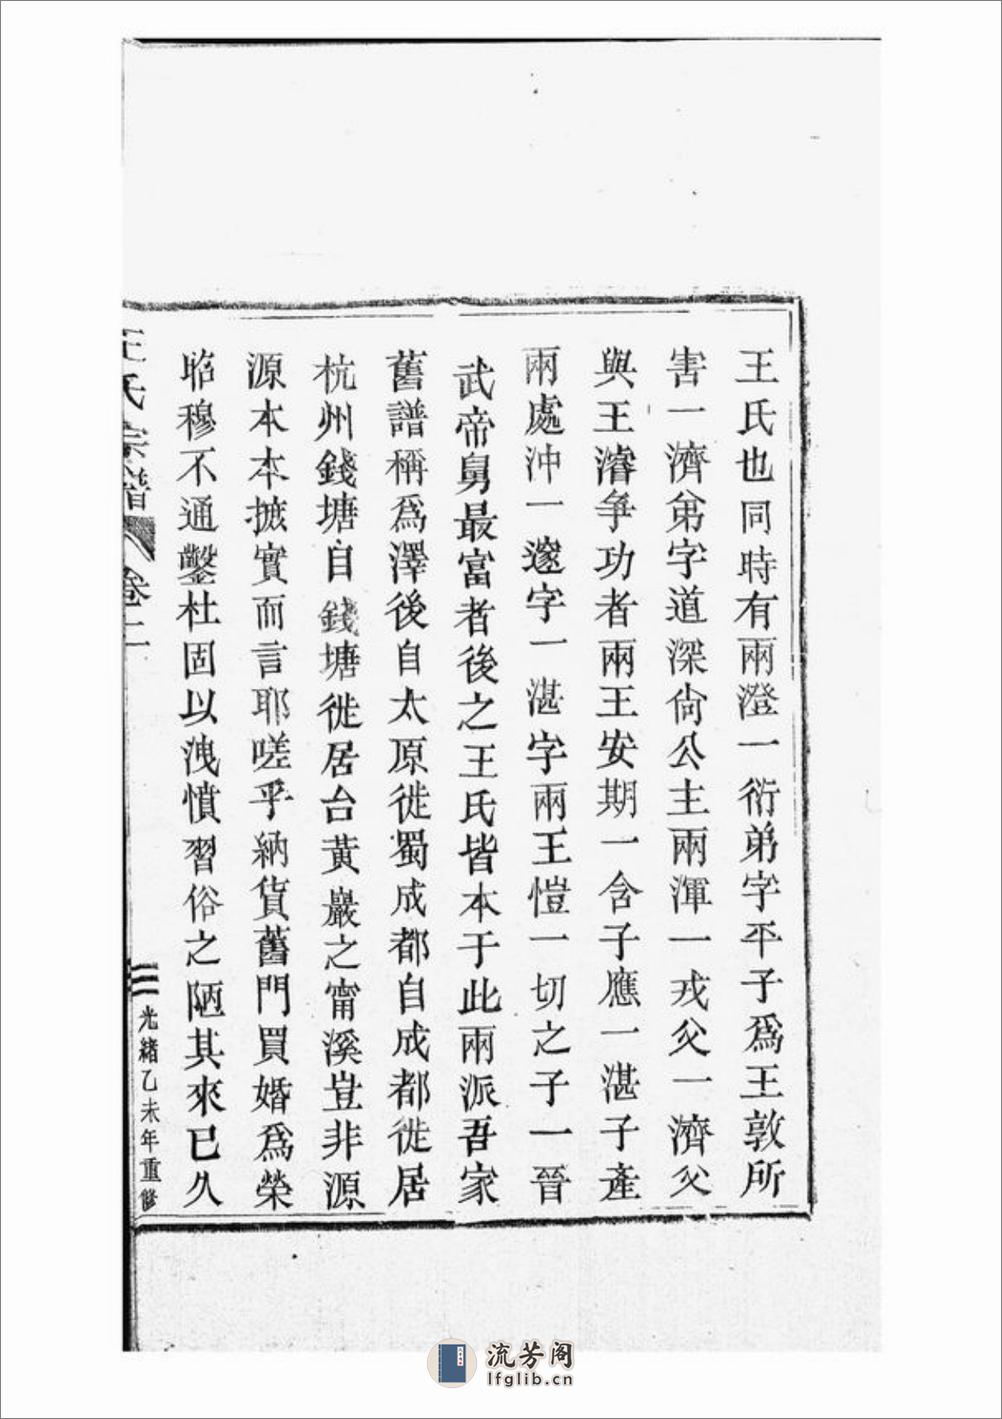 王氏也同時有兩澄一衍弟字平子爲王敦所
害一濟弟字道深尙公主兩渾一戎父一濟父
與王濬爭功者兩王安期一含子應一湛子產
兩處沖一邃字一湛字兩王愷一切之子一晉
武帝舅最富者後之王氏皆本于此兩派吾家
舊譜稱爲澤後自太原徙蜀成都自成都徙居
杭州錢塘自錢塘徙居台黃巖之甯溪豈非源
源本本摭實而言耶嗟乎納貨舊門買婚爲榮
昭穆不通鑿杜固以洩憤習俗之陋其來已久
王氏宗譜 卷二 三 光緒乙未年重修
流芳阁
lfglib.cn